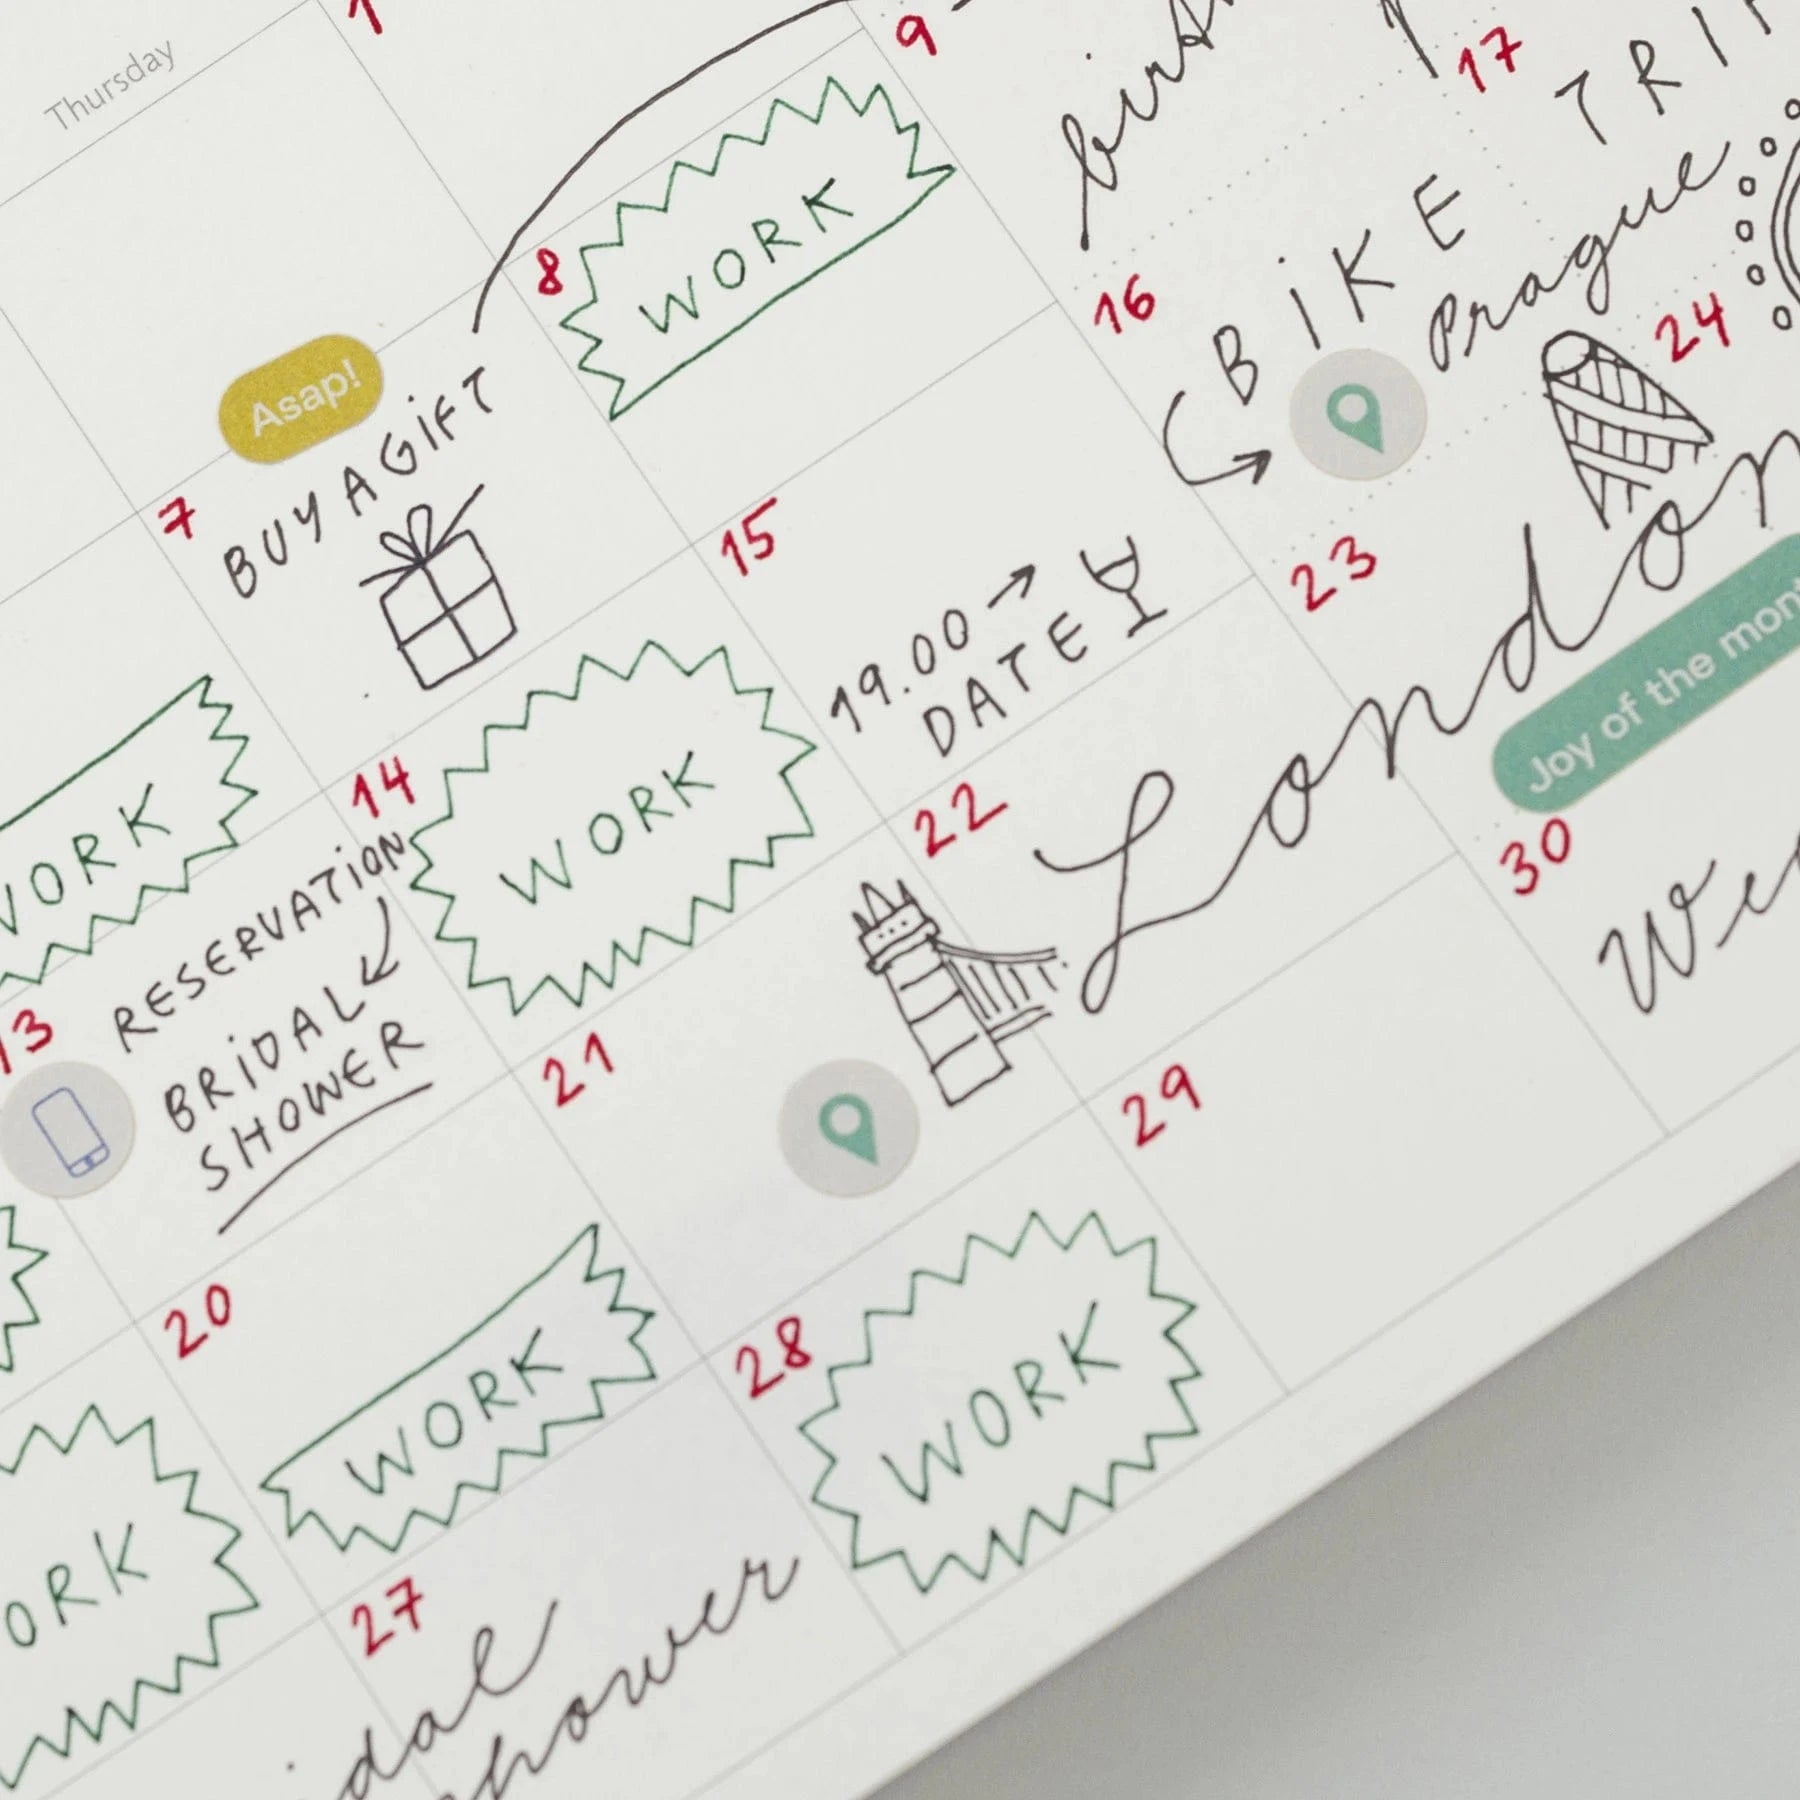 Thursday
1
9
17
8
WORK
TRI
BIKE
Prague
16
24
Asap!
BUY A GIFT
7
15
19.00 →
DATE
23
London
Joy of the mont
14
WORK
WORK
RESERVATION
BRIDAL
SHOWER
13
22
30
21
29
20
WORK
28
WORK
ORK
27
idal
shower